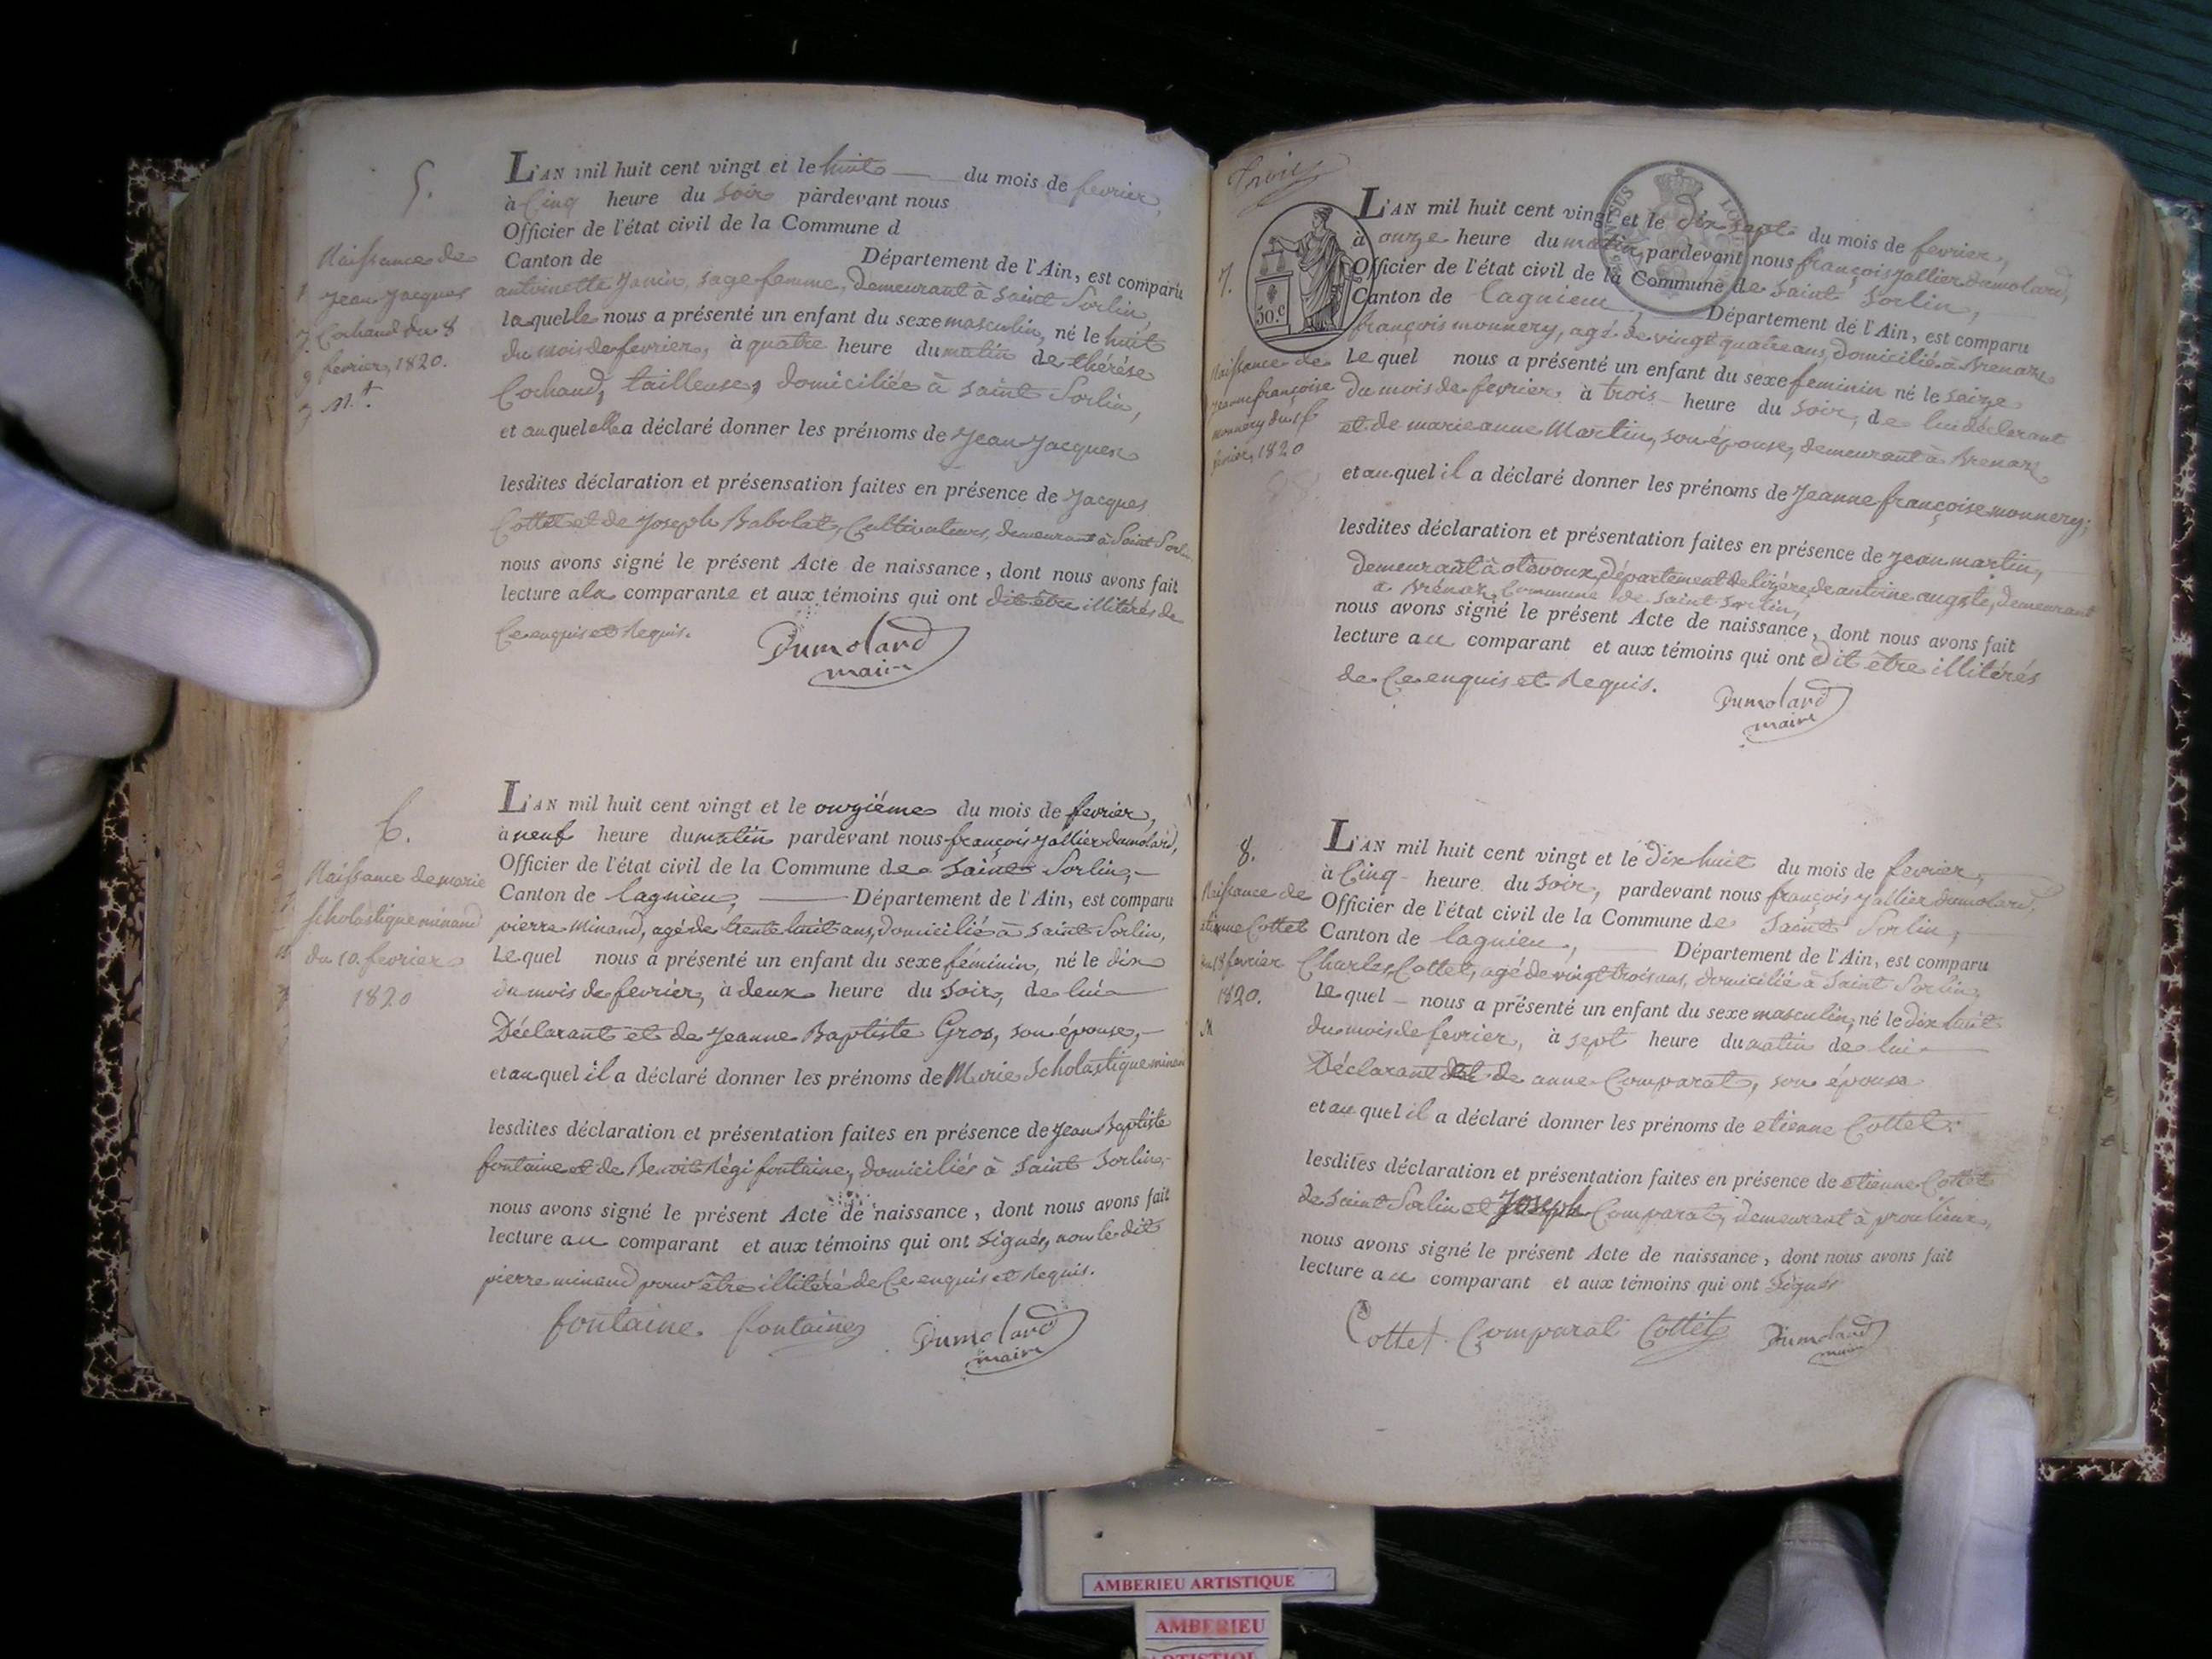 5.
Naissance de
Jean Jacques
Cochand du 8
fevrier, 1820.
L'AN mil huit cent vingt et le huit du mois de fevrier,
à Cinq heure du soir pàrdevant nous
Officier de l'état civil de la Commune d
Canton de Département de l'Ain, est comparu
antoinette Janin, sage femme, demeurant à saint Sorlin,
laquelle nous a présenté un enfant du sexe masculin, né le huit
du mois de fevrier, à quatre heure du matin de thérése
Cochand, tailleuse, domiciliée à saint Sorlin,
et auquel elle a déclaré donner les prénoms de Jean Jacques
lesdites déclaration et présensation faites en présence de Jacques
Cottet et de Joseph Babolat, Cultivateurs, demeurant à Saint Sorlin
nous avons signé le présent Acte de naissance, dont nous avons fait
lecture a la comparante et aux témoins qui ont dit être illitérés de
Ce enquis et Requis.
Dumolard
maire
6.
Naissance de marie
scholastique minand
du 10. fevrier
1820
L'AN mil huit cent vingt et le onziéme du mois de fevrier,
à neuf heure du matin pardevant nous françois Jallier dumolard,
Officier de l'état civil de la Commune de saint Sorlin,
Canton de lagnieu, Département de l'Ain, est comparu
pierre Minand, agé de trente huit ans, domicilié à saint Sorlin,
Lequel nous a présenté un enfant du sexe féminin, né le dix
du mois de fevrier, à deux heure du soir, de lui
Déclarant et de Jeanne Baptiste Gros, son épouse,
et auquel il a déclaré donner les prénoms de Marie Scholastique minand
lesdites déclaration et présentation faites en présence de Jean Baptiste
fontaine et de Benoit Régi fontaine, domiciliés à saint Sorlin,
nous avons signé le présent Acte de naissance, dont nous avons fait
lecture au comparant et aux témoins qui ont signés, non le dit
pierre minand pour être illitéré de Ce enquis et Requis.
fontaine. fontaine Dumolard
maire
trois
7.
30.c
Naissance de
Jeanne françoise
monnery du 16
fevrier, 1820
L'AN mil huit cent vingt et le dix sept du mois de fevrier,
à onze heure du matin, pardevant nous françois Jallier dumolard,
Officier de l'état civil de la Commune de saint Sorlin,
Canton de lagnieu, Département de l'Ain, est comparu
françois monnery, agé de vingt quatre ans, domicilié à Brenaz
Lequel nous a présenté un enfant du sexe feminin né le seize
du mois de fevrier à trois heure du soir, de lui déclarant
et de marie anne Martin, son épouse, demeurant à Brenaz
et auquel il a déclaré donner les prénoms de Jeanne françoise monnery;
lesdites déclaration et présentation faites en présence de Jean martin,
demeurant à département de lizére, de antoine demeurant
a Brénaz, Commune de saint Sorlin,
nous avons signé le présent Acte de naissance, dont nous avons fait
lecture au comparant et aux témoins qui ont dit être illitérés
de Ce enquis et Requis.
Dumolard
maire
8.
Naissance de
etienne Cottet
du 18 fevrier
1820.
M
L'AN mil huit cent vingt et le dix huit du mois de fevrier,
à Cinq heure du soir, pardevant nous françois Jallier dumolard,
Officier de l'état civil de la Commune de Saint Sorlin,
Canton de lagnieu, Département de l'Ain, est comparu
Charles Cottet, agé de vingt trois ans, domicilié à Saint Sorlin,
Lequel nous a présenté un enfant du sexe masculin, né le dix huit
du mois de fevrier, à sept heure du matin de lui
Déclarant et de anne Comparat, son épouse
et auquel il a déclaré donner les prénoms de etienne Cottet.
lesdites déclaration et présentation faites en présence de etienne Cottet
de Saint Sorlin et Joseph Comparat, demeurant à proulieux,
nous avons signé le présent Acte de naissance, dont nous avons fait
lecture au comparant et aux témoins qui ont signés
Cottet. Comparat Cottet Dumolard
maire
AMBERIEU ARTISTIQUE
AMBERIEU
ARTISTIQUE